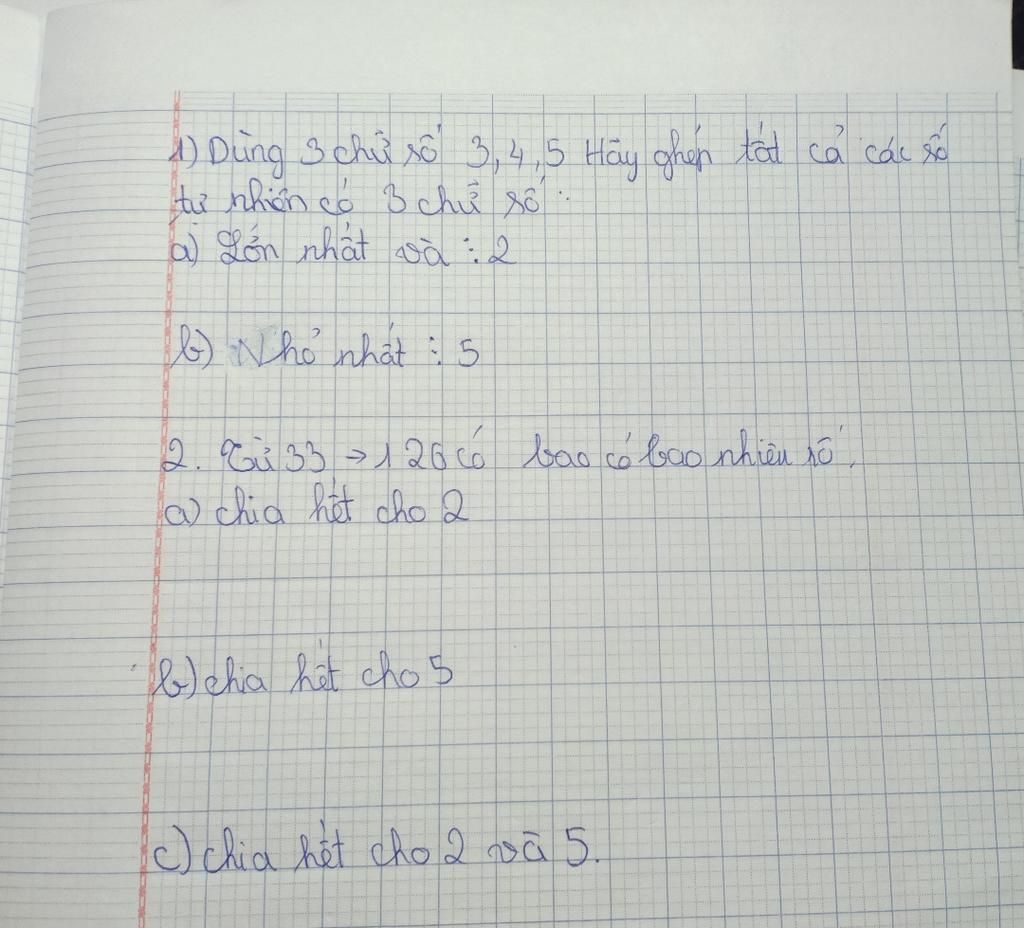 1) Dùng 3 chữ số 3, 4, 5 Hãy ghép tất cả các số
tự nhiên có 3 chữ số :
a) Lớn nhất và ⋮ 2
b) Nhỏ nhất ⋮ 5
2. Từ 33 → 126 có bao có bao nhiêu số.
a) chia hết cho 2
b) chia hết cho 5
c) chia hết cho 2 và 5.